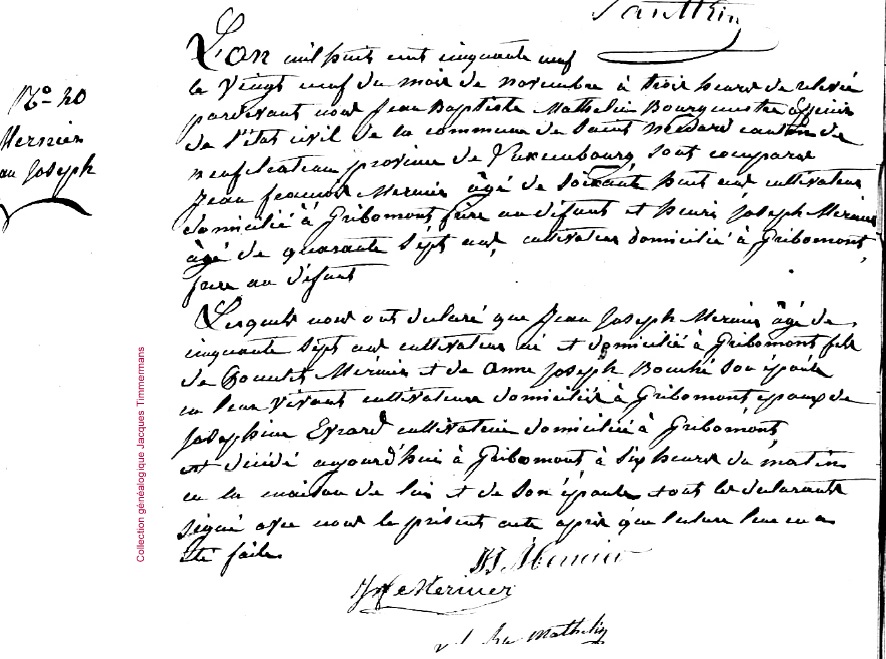 L'an mil huit cent cinquante neuf
le vingt neuf du mois de novembre à trois heures de relevée
pardevant nous Jean Baptiste Mathelin Bourgmestre officier
de l'état civil de la commune de Saint Médard canton de
neufchateau province de Luxembourg, sont comparus
Jean françois Mernier âgé de soixante huit ans cultivateur
domicilié à Gribomont frère au défunt et henri Joseph Mernier
âgé de quarante sept ans, cultivateur domicilié à Gribomont,
frère au défunt
N° 20
Mernier
Joseph
Lesquels nous ont declaré que Jean Joseph Mernier âgé de
cinquante sept ans cultivateur né et domicilié à Gribomont fils
de Mernier et de anne Joseph son épouse
en leur vivant cultivateurs domiciliés à Gribomont époux de
Joséphine Evrard cultivatrice domiciliée à Gribomont,
est décédé aujourd'hui à Gribomont à six heures du matin
en la maison de lui et de son épouse et ont les declarants
signé avec nous le présent acte après que lecture leur en a
été faite.
HJ Mernier
Mernier
Mathelin
Collection généalogique Jacques Timmermans